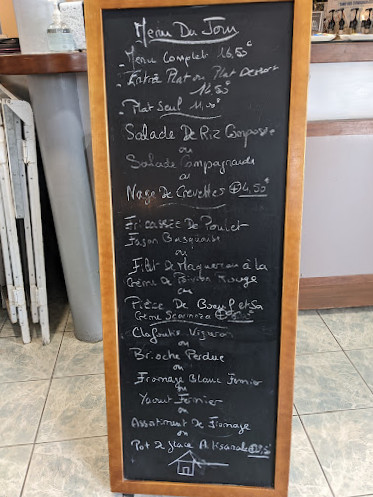 Menu Du Jour
- Menu Complet 16,50€
- Entrée Plat ou Plat Dessert
14,50€
- Plat Seul 11,00€
Salade De Riz Composée
ou
Salade Campagnarde
ou
Nage De Crevettes +4,50€
Fricassée De Poulet
Façon Basquaise
ou
Filet De Maquereau à la
Crème De Poivron Rouge
ou
Pièce De Boeuf et Sa
Crème
Clafoutis Vigneron
ou
Brioche Perdue
ou
Fromage Blanc Fermier
ou
Yaourt Fermier
ou
Assortiment De Fromage
ou
Pot de glace Artisanale